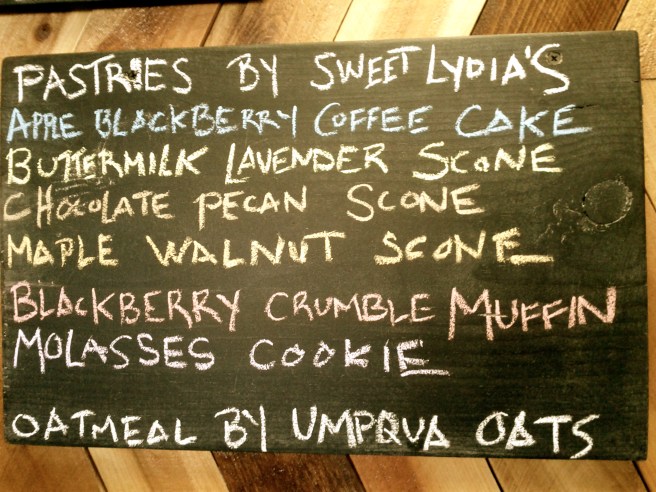 PASTRIES BY SWEET LYDIA'S
APPLE BLACKBERRY COFFEE CAKE
BUTTERMILK LAVENDER SCONE
CHOCOLATE PECAN SCONE
MAPLE WALNUT SCONE
BLACKBERRY CRUMBLE MUFFIN
MOLASSES COOKIE
OATMEAL BY UMPQUA OATS